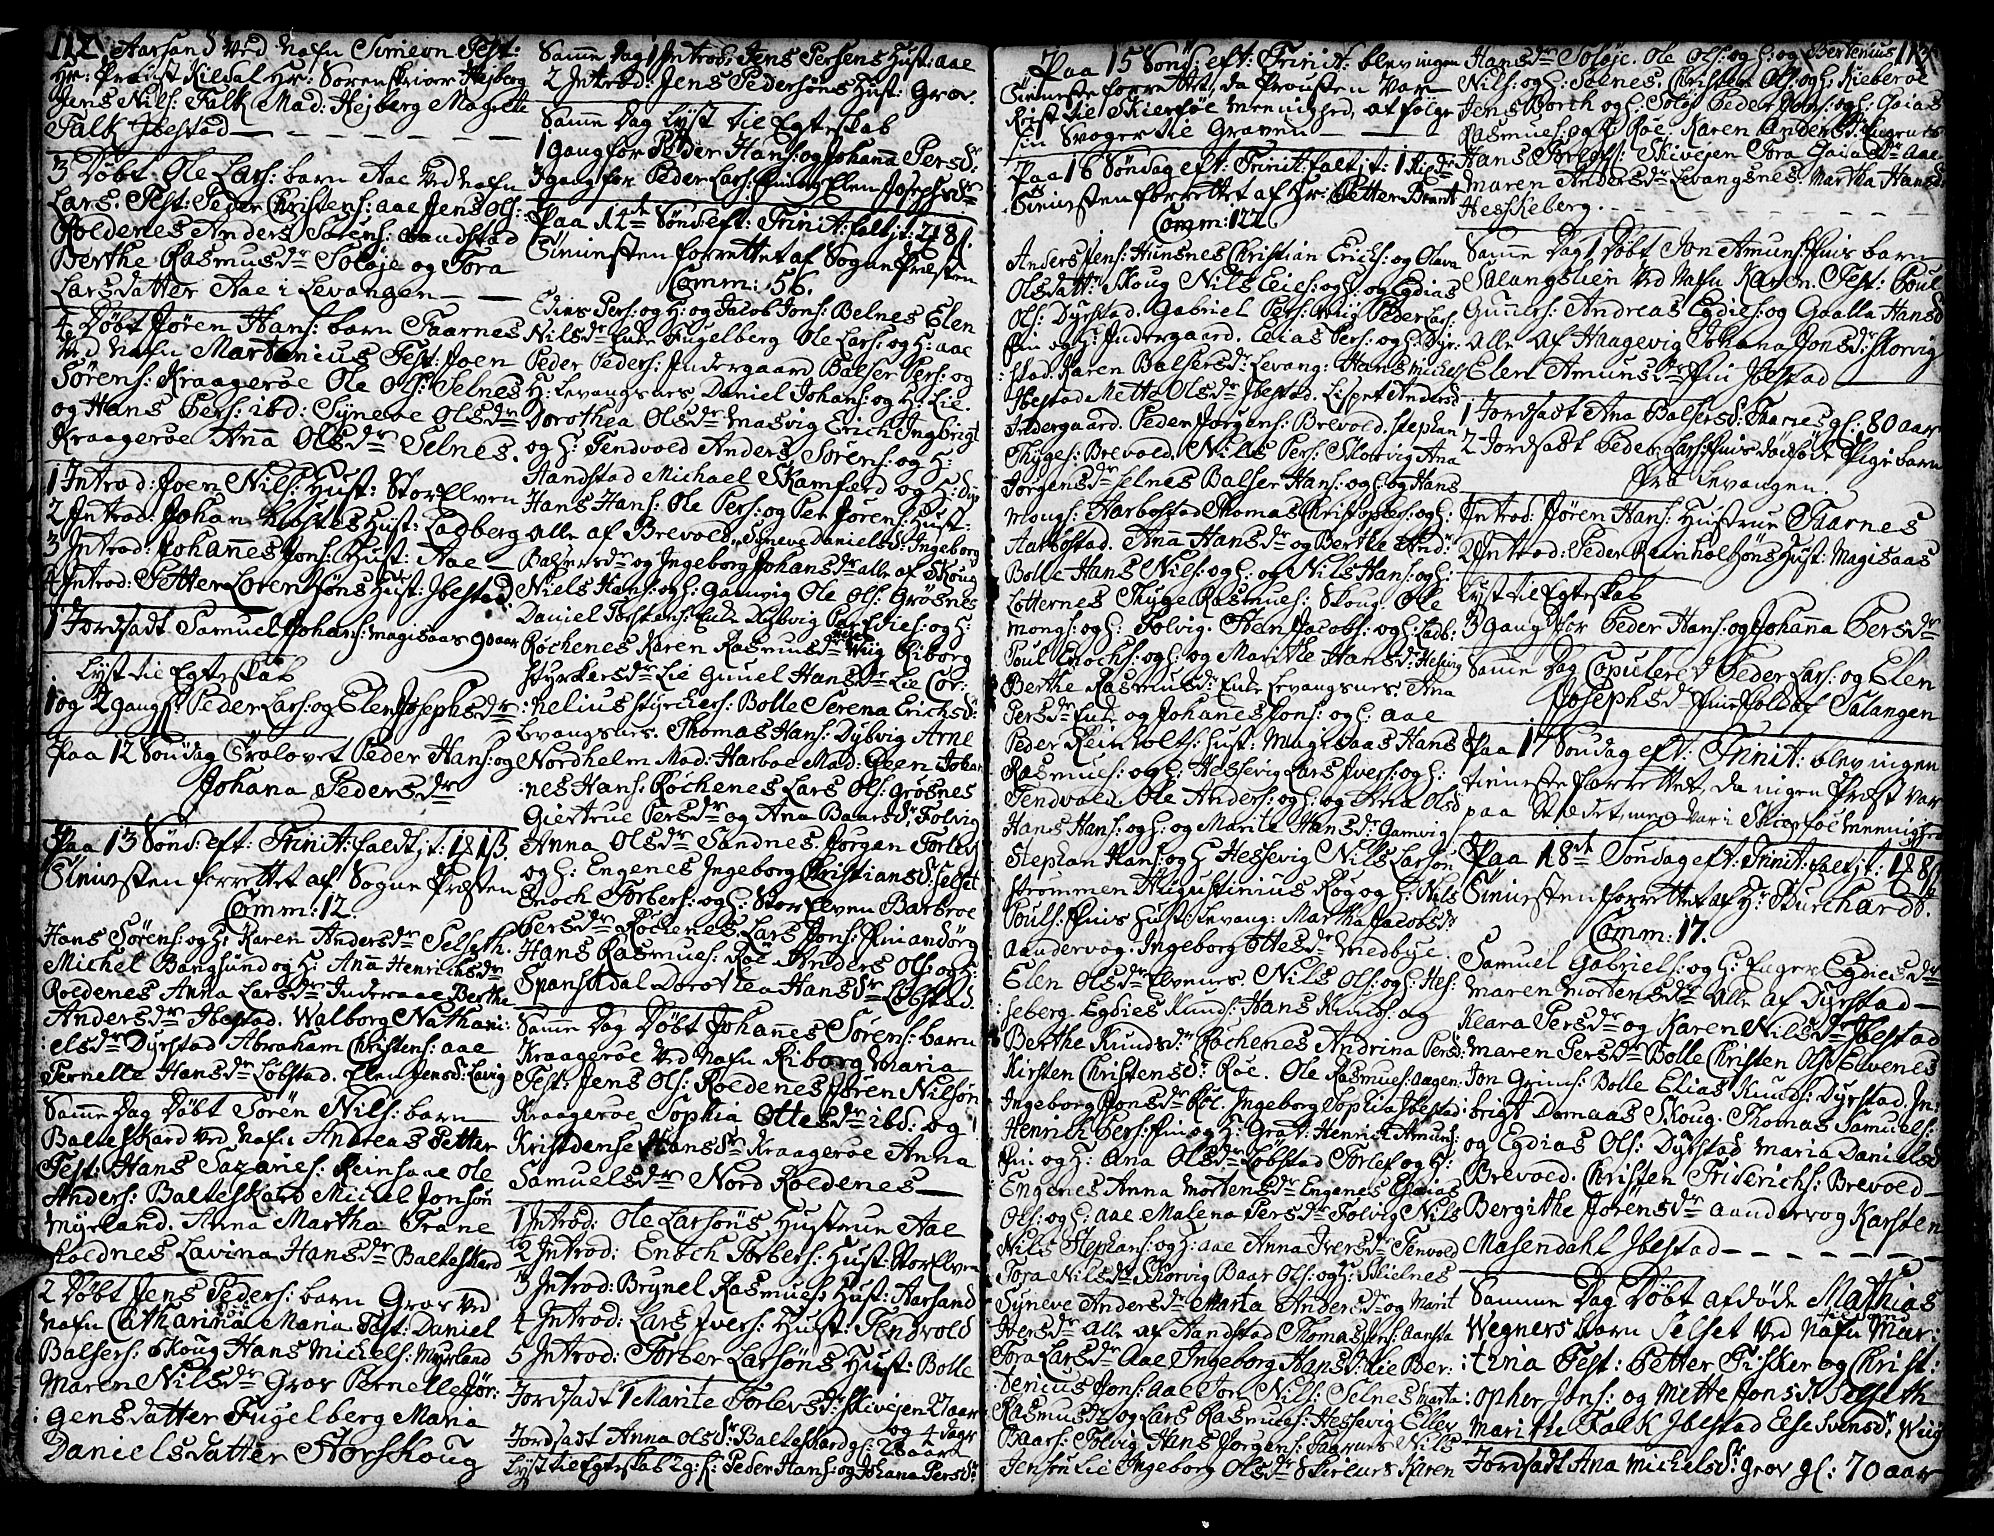 112. Aarsand Ved Nafn Simeon Test:
Hr: Præust Kildal Hr: Sorenskriver Hejberg
Jens Nils: Falk Mad: Hejberg Magrete
Falk Jbestad
3 Døbt Ole Lars: barn Aae Ved Nafn
Lars. Test: Peder Christens: aae Jens Ols:
Roldenes Anders Sørens: Aandstad
Berthe Rasmusdr Soløje og Tora
Larsdatter Aae i Levangen
4 Døbt Jøren Hans: barn Taarnes
Ved Nafn Martenius Test: Joen
Sørens: Kraagerøe Ole Ols: Selnes
og Hans Pers: ibd: Syneve Olsdr
Kraagerøe Ana Olsdr Selnes.
1 Introd: Joen Nils: Hust: StorElven
2 Introd: Johan Hust: Ladberg
3 Introd: Johannes Jons: Hust: Aae
4 Introd: Petter Lorentsøns Hust: Jbestad:
1 Jordsadt Samuel Johans: Magisaas 90 aar
Lyst til Egteskab
1 og 2 gang f: Peder Lars: og Elen Josephsdr
Paa 12 Søndag Trolovet Peder Hans: og
Johana Pedersdr
Paa 13 Sønd: eft: Trinit: faldt j t: 1 β 1 β.
Tienesten forrettet af Sogne Præsten
Comm: 12.
Hans Sørens: og H: Karen Andersdr Selseth.
Michel Bangsund og H: Ana Henrichsdr
Roldenes Anna Larsdr Inderaae Berthe
Andersdr Jbestad. Walborg Nathani:
elsdr Dyrstad Abraham Christens: aae
Pernelle Hansdr Løbstad. Elen Jensd: Lavig
Samme Dag Døbt Sørën Nils: barn
Balteskard Ved Nafn Andreas Petter
Test: Hans Zazaries: Reinsaae Ole
Anders: Balteskard Michel Jonsøn
Myrland. Anna Martha Trane
Roldnes Lavina Hansdr Balteskard
2 Døbt Jens Peders: barn Grov Ved
Nafn Catharina Maria Test: Daniel
Balsers: Skoug Hans Michels: Myrland
Maren Nilsdr Grov Pernelle Jør:
gensdatter Fugelberg Maria
Danielsdatter Storskoug
Samme Dag 1 Introd: Jens Persens Hust: aae
2 Introd: Jens Pedersøns Hust: Grov.
Samme Dag Lyst til Egteskab
1 gang for Peder Hans: og Johanna Persdr
3 gang for Peder Lars: og Elen Josephsdr
Paa 14de Sønd: eft: Trinit: falt j t: 2 β 8 β.
Tienesten forrettet af SognePræsten
Comm: 56.
Edies Pers: og H: og Jacob Jons: Belnes Elen
Nilsdr Enke Fugelberg Ole Lars: og H: aae
Peder Peders: Indergaard Balser Pers: og
H: Levangsnes Daniel Johans: og H: Lie.
Dorothea Olsdr Masvig Erich Ingbrigt
og H: Tendvold Anders Sørens: og H:
Aandstad Michael Skamfærd og H:
Hans Hans: Ole Pers: og Per Jørens: Hust:
alle af Brevold. Syneve Danielsd: Ingeborg
Balsersdr og Ingeborg Johansdr alle af Skoug
Niels Hans: og H: Gamvig Ole Ols: Grøsnes
Daniel Torstens: Enke Dybvig Per Edies: og H:
Røchenes Karen Rasmusdr Wiig Riborg
Styrkersdr Lie Gunel Hansdr Lie Cor:
nelius Styrkers: Bolle Serena Erichsd:
Levangsnes. Thomas Hans: Dybvig Arne
Nordhelm Mad: Harboe Mad: Geen Johan
nes Hans: Røchenes Lars Ols: Grøsnes
Giertrue Persdr og Ana Baarsdr Folvig
Anna Olsdr Sandnes. Jørgen Torlefs
og H: Engenes Ingeborg Christiansd: Selset
Enoch Torbers: og H: StorElven Barbroe
Persdr Røchenes Lars Jons: Fin andørg
Hans Rasmus: Røe Anders Ols: og H:
Spansdal Dorothea Hansdr Løbstad.
Samme Dag Døbt Johanes Sørens: barn
Kraagerøe Ved Nafn Riborg Maria
Test: Jens Ols: Roldenes Jøren Nilsøn
Kraagerøe Sophia Ottesdr ibd: og
Kristdense Hansdr Kraagerøe Anna
Samuelsdr Nord Roldenes
1 Introd: Ole Larsøns Hustrue Aae
2 Introd: Enoch Torbers: Hust: StorElven
3 Introd: Brynel Rasmus: Hust: Aarsand
4 Introd: Lars Ivers: Hust: Tendvold
5 Introd: Torber Larsøns Hust: Bolle
Jordsadt 1 Marite Torlevsd: Skivejen 27 aar
og 4 dage
Jordsadt Anna Olsdr: Balteskard gl: 28 aar
Lyst til Egteskab 2 g: f: Peder Hans: og Johana Persdr
Paa 15 Sønd: eft: Trinit: blev ingen
Tieneste forrettet, da Prousten Var
til Skierføe Menighed, at følge
sin Svoger til Graven
Paa 16 Søndag eft: Trinit: falt j t: 1 Rigsdr
Tienesten forrettet af Hr: Petter Brant
Comm: 122
Anders Jens: Hunsnes Christian Erichs: og Olava
Olsdattr Skoug Nils Eliës: og H: og Egdias
Ols: Dyrstad. Gabriel Pers: Wiig Peder Lars:
Fin og H: Indergaard. Elias Pers: og H: Dyr:
stad. Karen Balsersdr Levang: Hans Michels
Jbestad Mette Olsdr Jbestad. Lispet Andersd
Indergaard. Peder Jørgens: Brevold. Stephan
Thyges: Brevold. Nils Pers: Skorvig Ana
Jørgensdr Selnes Balser Hans: og H: og Hans
Mongs: Harbostad Thomas Christophers: og H:
Aarbostad. Ana Hansdr og Berthe Andr:
Bolle Hans Nils: og H: og Nils Hans: og H:
Lotternes Thyge Rasmus: Skoug. Ole
Mongs: og H: Folvig. Sten Jacobs: og H: Ladb:
Poul Enochs: og H: og Marithe Hansdr Hessvig
Berthe Rasmusdr Enke Levangsnes. Ana
Persdr Enke og Johanes Jons: og H: aae
Peder Reinholts: Hust: Magisaas Hans
Rasmus: og H: Hessevig Lars Ivers: og H:
Tendvold. Ole Anders: og H: og Ana Olsd
Hans Hans: og H: og Marite Hansdr: Gamvig
Stephan Hans: og H: Hessevig Nils Larsøn
Strømmen Augustinius Røg og H: Nils
Pouls: Finis Hust: Levang: Martha Jacobsdr
Aandervog. Ingeborg Ottesdr Medbye.
Elen Olsdr Elvenes. Nils Ols: og H: Hes:
seberg. Egdies Knuds: Hans Knuds: og
Berthe Knudsdr. Røchenes Andrina Persd:
Kirsten Christensdr. Røe. Ole Rasmus: Aagen:
Ingeborg Jonsdr Røe. Ingeborg Sophia Jbestad
Henrich Pers: Fin og H: Grat: Henrich Amuns:
Fin og H: Ana Olsdr Løbstad Torlef og H:
Engenes Anna Mortensdr Engenes Esaias
Ols: og H: aae Malena Persdr Folvig Nils
Nils Stephans: og H: aae Anna Iversdr Tenvold
Tora Nilsdr Skorvig Baar Ols: og H: Skielnes
Syneve Andersdr Marta Andersdr og Marit
Iversdr alle af Aandstad Thomas Jens: Aansta
Tora Larsdr Aae Ingeborg Hansd: Lie Ber:
denius Jons: aae Jon Nils: Selnes Marta
Rasmusdr og Lars Rasmus: Hessevig Ellev
Baars: Folvig Hans Jørgens: Taarnes Nils
Jensøn Lie Ingeborg Olsdr Skielnes Karen
Hansdr Soløje. Ole Ols: og H: og Bertenius 113
Nils: og H: Selnes. Christen Ols: og H: Kieberøe
Jens Borch og H: Soløj Peder Jons: og H: Esaias
Rasmus: og H: Røe. Karen Andersdr Engenes
Hans Torlefs: Skivejen Tora Esaiasdr Aae
Maren Andersdr Levangsnes. Martha Hansdr
Hesskeberg.
Samme Dag 1 Døbt Jon Amuns: Finis barn
Salangslien Ved Nafn Karen. Test: Poul
Guners: Andreas Egdies: og Gaalla Hansd
alle af Haagevig Johana Jonsd: Skorvig
Elen Amunsdr Fin Jbestad
1 Jordsadt Ana Balsersd: Taarnes gl: 80 aar
2 Jordsadt Peder Lars: Finis dødfødt Pigebarn
fra Levangen.
1 Introd: Jøren Hans: Hustrue Taarnes
2 Introd: Peder Reinholtsøns Hust: Magisaas
Lyst til Egteskab
3 gang for Peder Hans: og Johanna Persdr
Samme Dag Copuleret Peder Lars: og Elen
Josephsdr af Salangen
Paa 17 Søndag eft: Trinit: blev ingen
tieneste forrettet, da ingen Præst var
paa Stædet, men var i Skierføe Menighed
Paa 18de Søndag eft: Trinit: falt j t: 1 β 8 β
Tienesten forrettet af Hr Burchardt.
Comm: 17.
Samuel Gabriels: og H: Inger Egdiesdr
Maren Mortensdr alle af Dyrstad
Klara Persdr og Karen Nilsdr Jbestad
Maren Persdr Bolle Christen Ols Elvenes
Jon Grims: Bolle Elias Knuds: Dyrstad. In:
brigt Domaas Skoug. Thomas Samuels:
og Egdias Ols: Dyrstad Maria Danielsd
Brevold. Christen Friderichs: Brevold
Bergithe Jørensdr Aandervog Karsten
Masendahl Jbestad
Samme Dag Døbt afdøde Mathias
Wegners barn Selset Ved Nafn Mar:
tina Test: Petter Fisker og Christ:
opher Jons: og Mette Jonsdr Selseth
Marithe Falk Jbestad Else Svensdr. Wiig
Jordsadt Ana Michelsdr: Grov gl: 70 aar